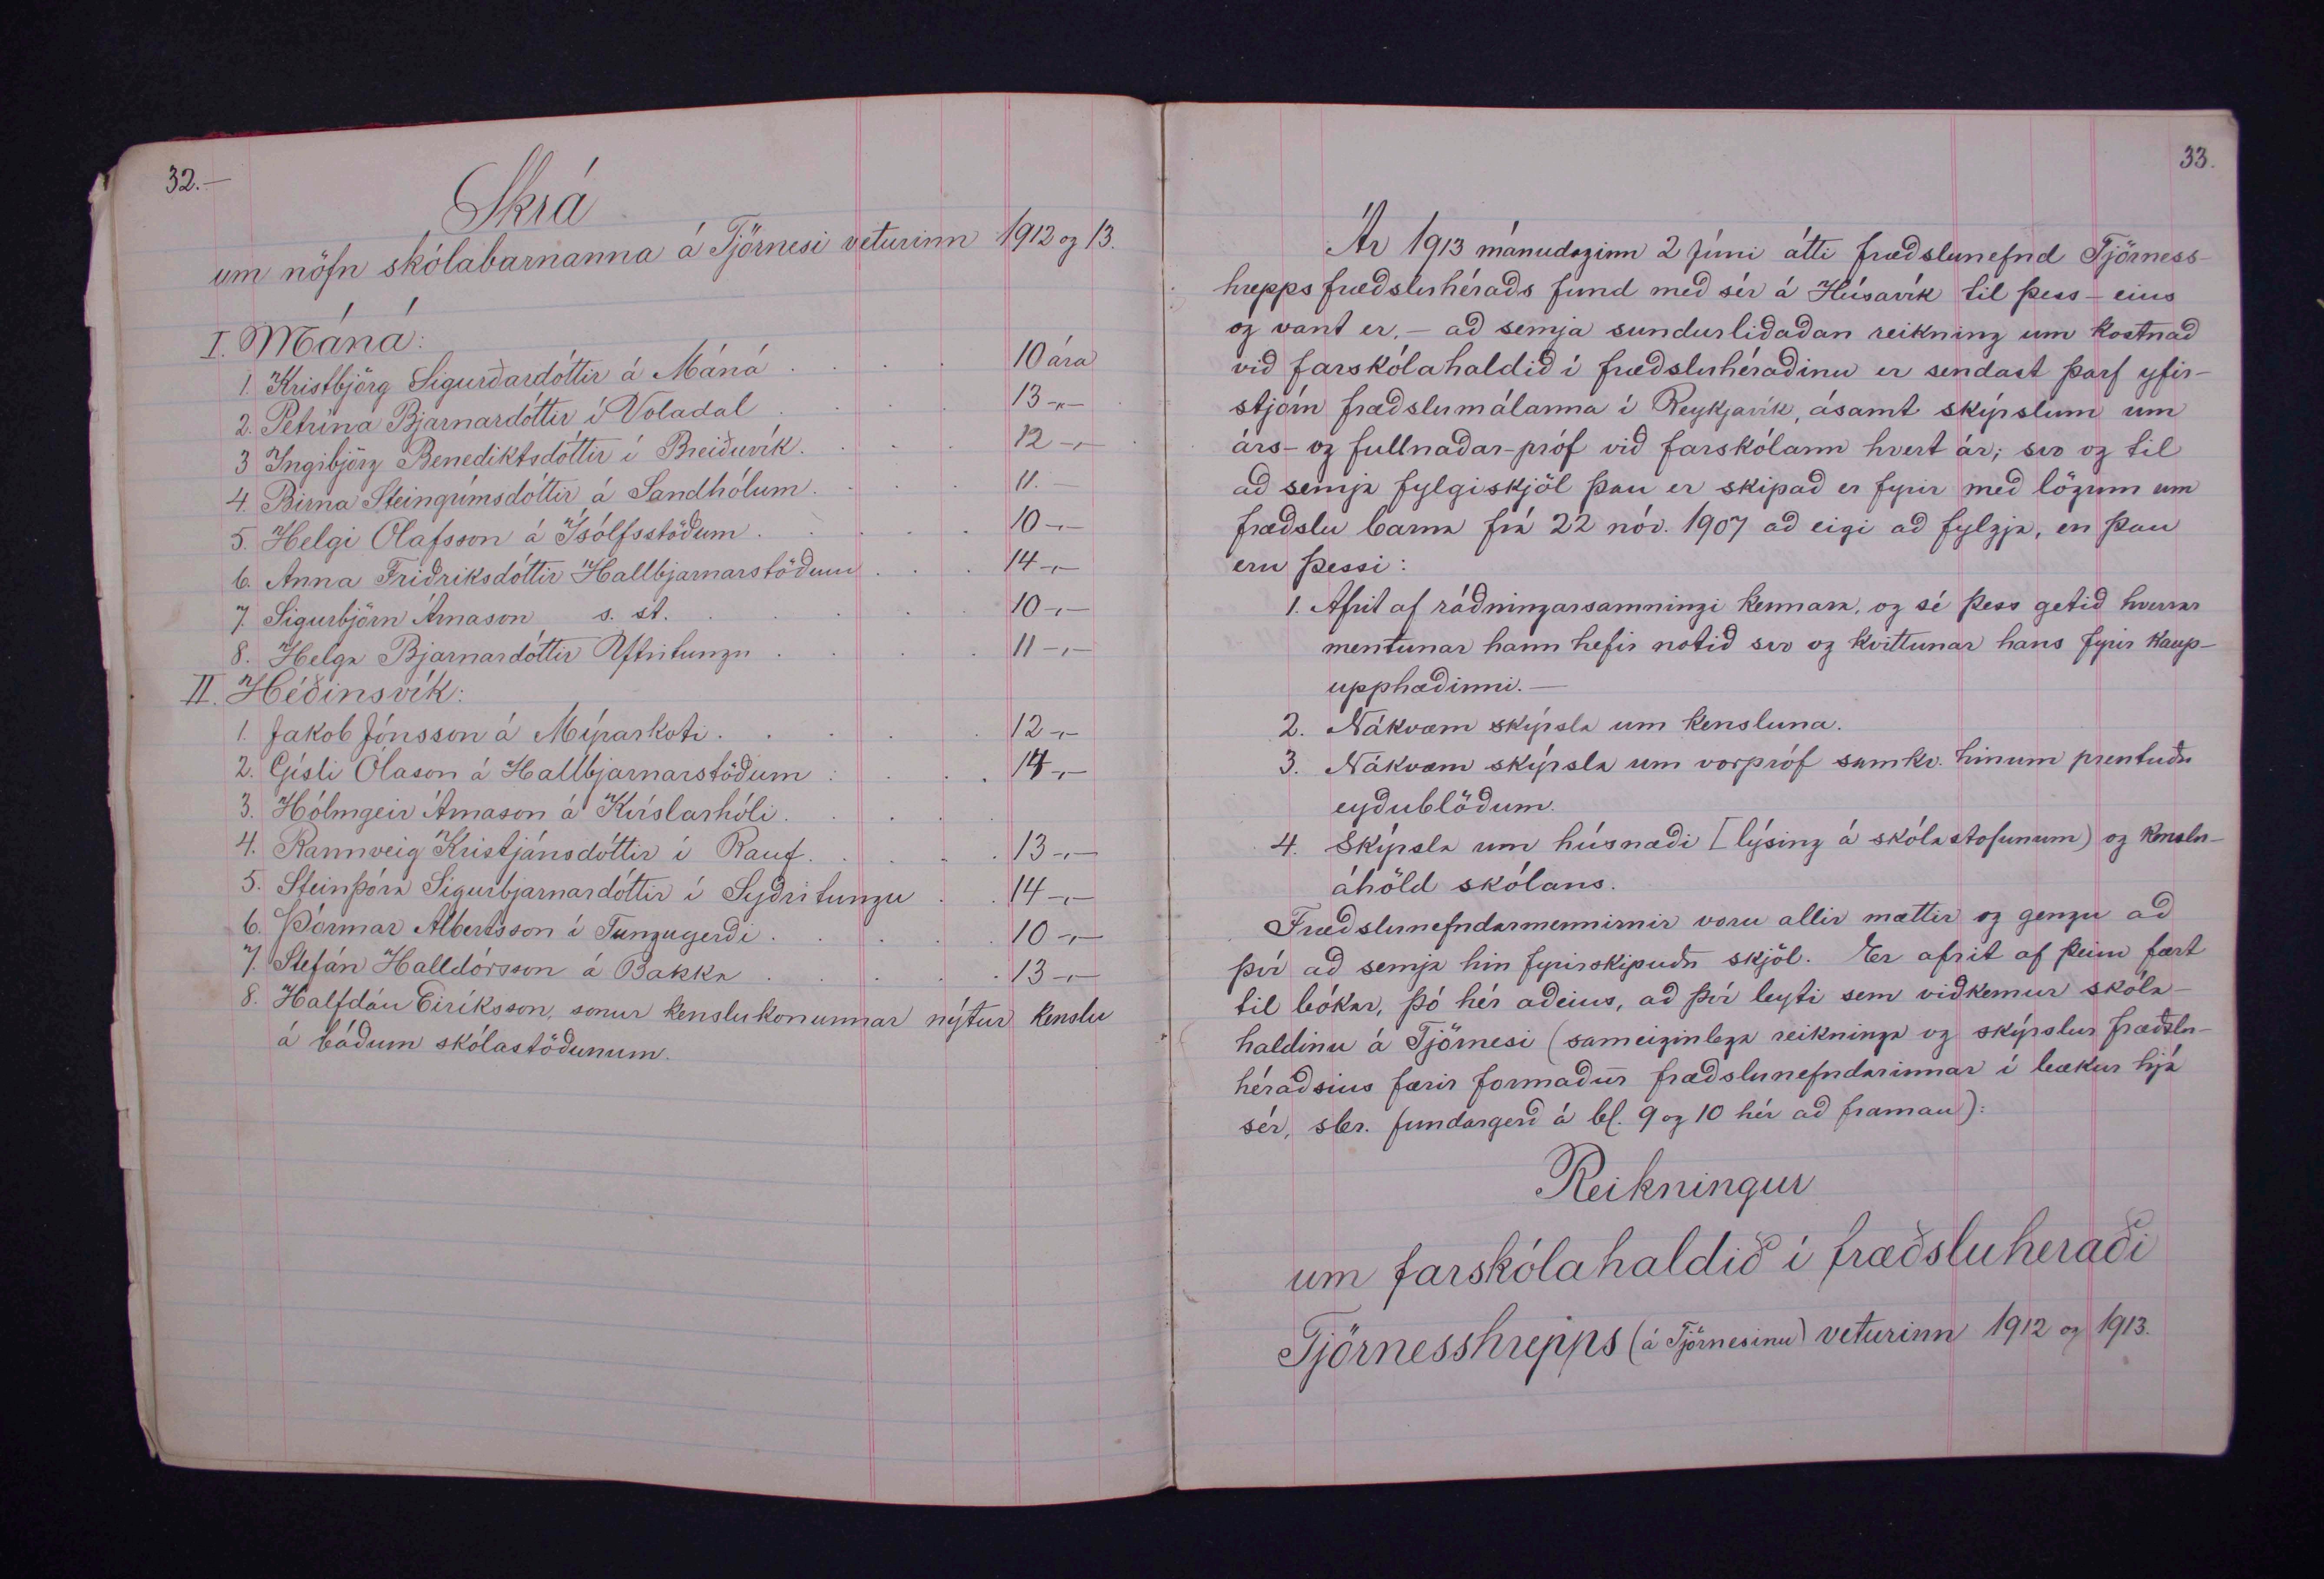 32.—
Skrá
um nöfn skólabarnanna á Tjörnesi veturinn 1912 og 13.
I. Máná:
1. Kristbjörg Sigurðardóttir á Máná . . . . 10 ára
2. Petrína Bjarnardóttir í Voladal . . . . 13 -„-
3 Ingibjörg Benediktsdóttir í Breiðuvík. . . . 12 -„-
4. Birna Steingrímsdóttir á Sandhólum. . . . 11. -
5. Helgi Ólafsson á Ísólfsstöðum . . . . . 10 -„-
6. Anna Friðriksdóttir Hallbjarnarstöðum . . . 14 -„-
7. Sigurbjörn Árnason s. st. . . . . 10 -„-
8. Helga Bjarnardóttir Ytritungu . . . . 11 -„-
II. Héðinsvík:
1. Jakob Jónsson á Mýrarkoti. . . . . 12 -„-
2. Gísli Ólason á Hallbjarnarstöðum : . . . 14 -„-
3. Hólmgeir Árnason á Kvíslarhóli. . . . .
4. Rannveig Kristjánsdóttir í Rauf. . . . . 13 -„-
5. Steinþóra Sigurbjarnardóttir í Syðritungu . . 14 -„-
6. Þórmar Albertsson í Tungugerði . . . . . 10 -„-
7. Stefán Halldórsson á Bakka . . . . . 13 -„-
8. Halfdán Eiríksson, sonur kenslukonunnar nýtur kenslu
á báðum skólastöðunum.
33.
Ár 1913 mánudaginn 2 Júni átti fræðslunefnd Tjörness-
hrepps fræðsluhéraðs fund með sér á Húsavík til þess – eins
og vant er, – að semja sundurliðaðan reikning um kostnað
við farskólahaldið í fræðsluhéraðinu er sendast þarf yfir-
stjórn fræðslumálanna í Reykjavík, ásamt skýrslum um
árs- og fullnaðar-próf við farskólann hvert ár; svo og til
að semja fylgiskjöl þau er skipað er fyrir með lögum um
fræðslu barna frá 22 nóv. 1907 að eigi að fylgja, en þau
eru þessi:
1. Afrit af ráðningarsamningi kennara, og sé þess getið hverrar
mentunar hann hefir notið svo og kvittunar hans fyrir kaup-
upphæðinni.—
2. Nákvæm skýrsla um kensluna.
3. Nákvæm skýrsla um vorpróf samkv. hinum prentuðu
eyðublöðum.
4. Skýrsla um húsnæði [lýsing á skólastofunum) og kenslu-
áhöld skólans.
Fræðslunefndarmennirnir voru allir mættir og gengu að
því að semja hin fyrirskipuðu skjöl. Er afrit af þeim fært
til bókar, þó hér aðeins, að því leyti sem viðkemur skóla-
haldinu á Tjörnesi (sameiginlega reikninga og skýrslur fræðslu-
héraðsins færir formaður fræðslunefndarinnar í bækur hjá
sér, sbr. fundargerð á bl. 9 og 10 hér að framan):
Reikningur
um farskólahaldið í fræðsluheraði
Tjörnesshrepps (á Tjörnesinu) veturinn 1912 og 1913.